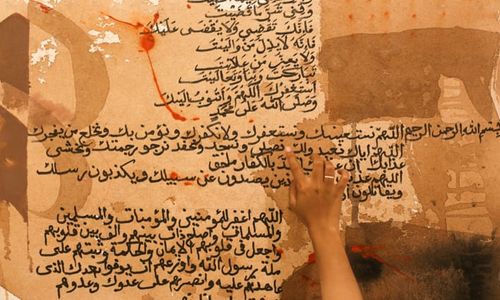 وقني شر ما قضيت
فإنك تقضي ولا يقضى عليك
فإنه لا يذل من واليت
ولا يعز من عاديت
تباركت ربنا وتعاليت
أستغفرك اللهم وأتوب إليك
وصلى الله على محمد
بسم الله الرحمن الرحيم اللهم نستعينك ونستغفرك ولا نكفرك ونؤمن بك ونخلع من يفجرك
اللهم إياك نعبد ولك نصلي ونسجد ونحفد نرجو رحمتك ونخشى
عذابك بالكفار ملحق
اللهم عذب الذين يصدون عن سبيلك ويكذبون رسلك
ويقاتلون
اللهم اغفر للمؤمنين والمؤمنات والمسلمين
والمسلمات وأصلح ذات بينهم وألف بين قلوبهم
واجعل في قلوبهم الإيمان والحكمة وثبتهم على
ملة رسول الله وأوزعهم أن يوفوا بعهدك الذي
عاهدتهم عليه وانصرهم على عدوك وعدوهم